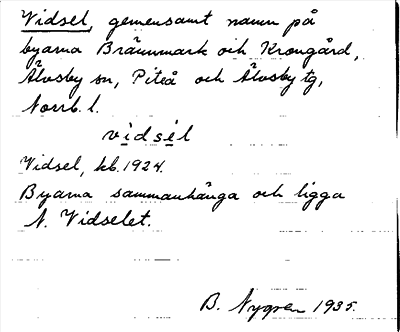 Vidsel, gemensamt namn på
byarna Brännmark och Krongård,
Älvsby sn, Piteå och Älvsby tg,
Norrb. l.
vidsel
Vidsel, kb. 1924.
Byarna sammanhänga och ligga
N. Vidselet.
B. Nygren 1935.